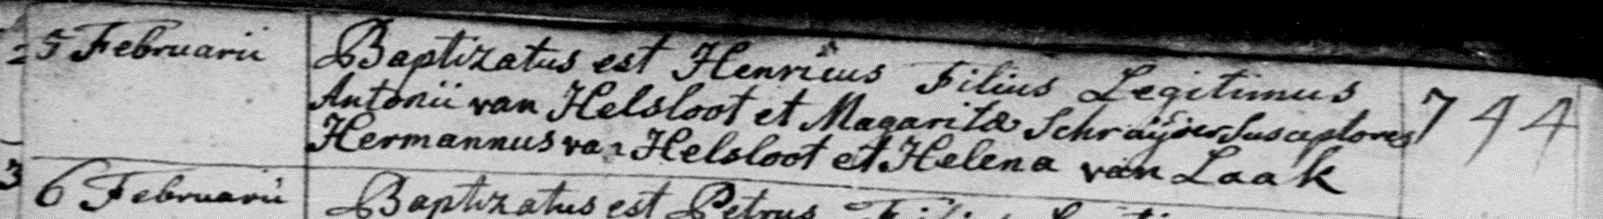 2
5 Februarii Baptizatus est Henricus Filius Legitimus
Antonii van Helsloot et Magarita Schraÿver Susceptores 744
Hermannus van Helsloot et Helena van Laak
3
6 Februarii Baptizatus est Petrus